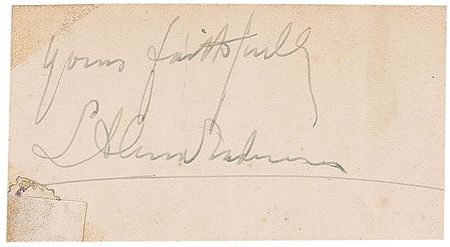 Yours faithfully
L Alma Tadema